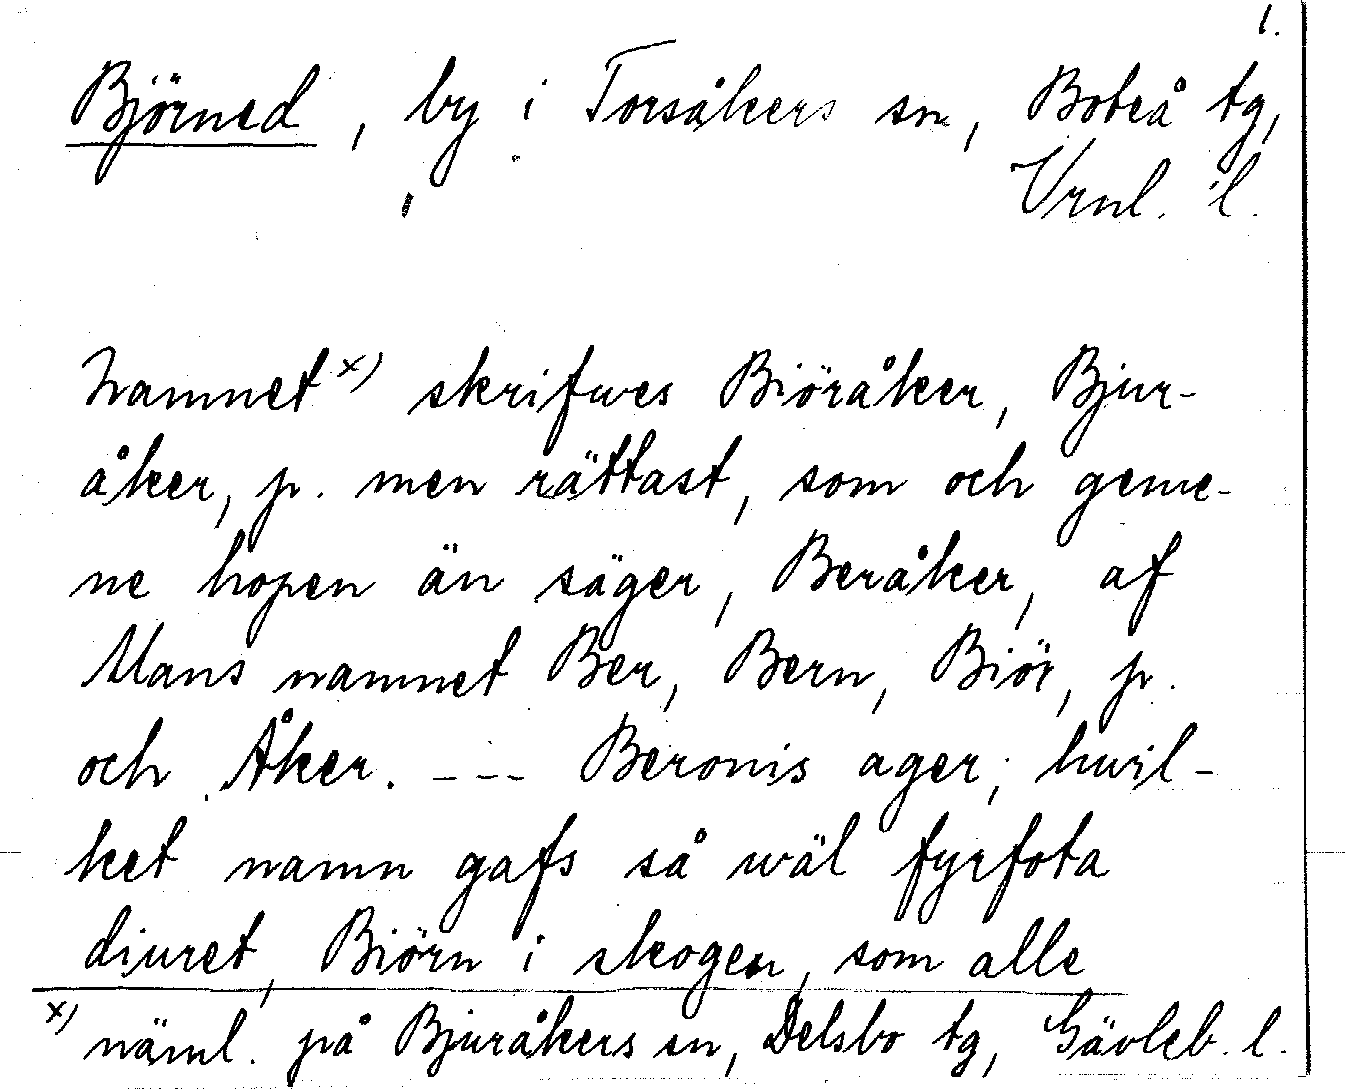 1.
Björned, by i Torsåkers sn, Boteå tg,
Vrnl. l.
Namnet x) skrifwes Biöråker, Bjur-
åker, p. men rättast, som och geme-
ne hopen än säger, Beråker, af
Mans namnet Ber, Bern, Biör, p.
och Åker. --- Beronis ager; hwil-
ket namn gafs så wäl fyrfota
diuret, Biörn i skogen, som alle
x) näml. på Bjuråkers sn, Delsbo tg, Gävleb. l.